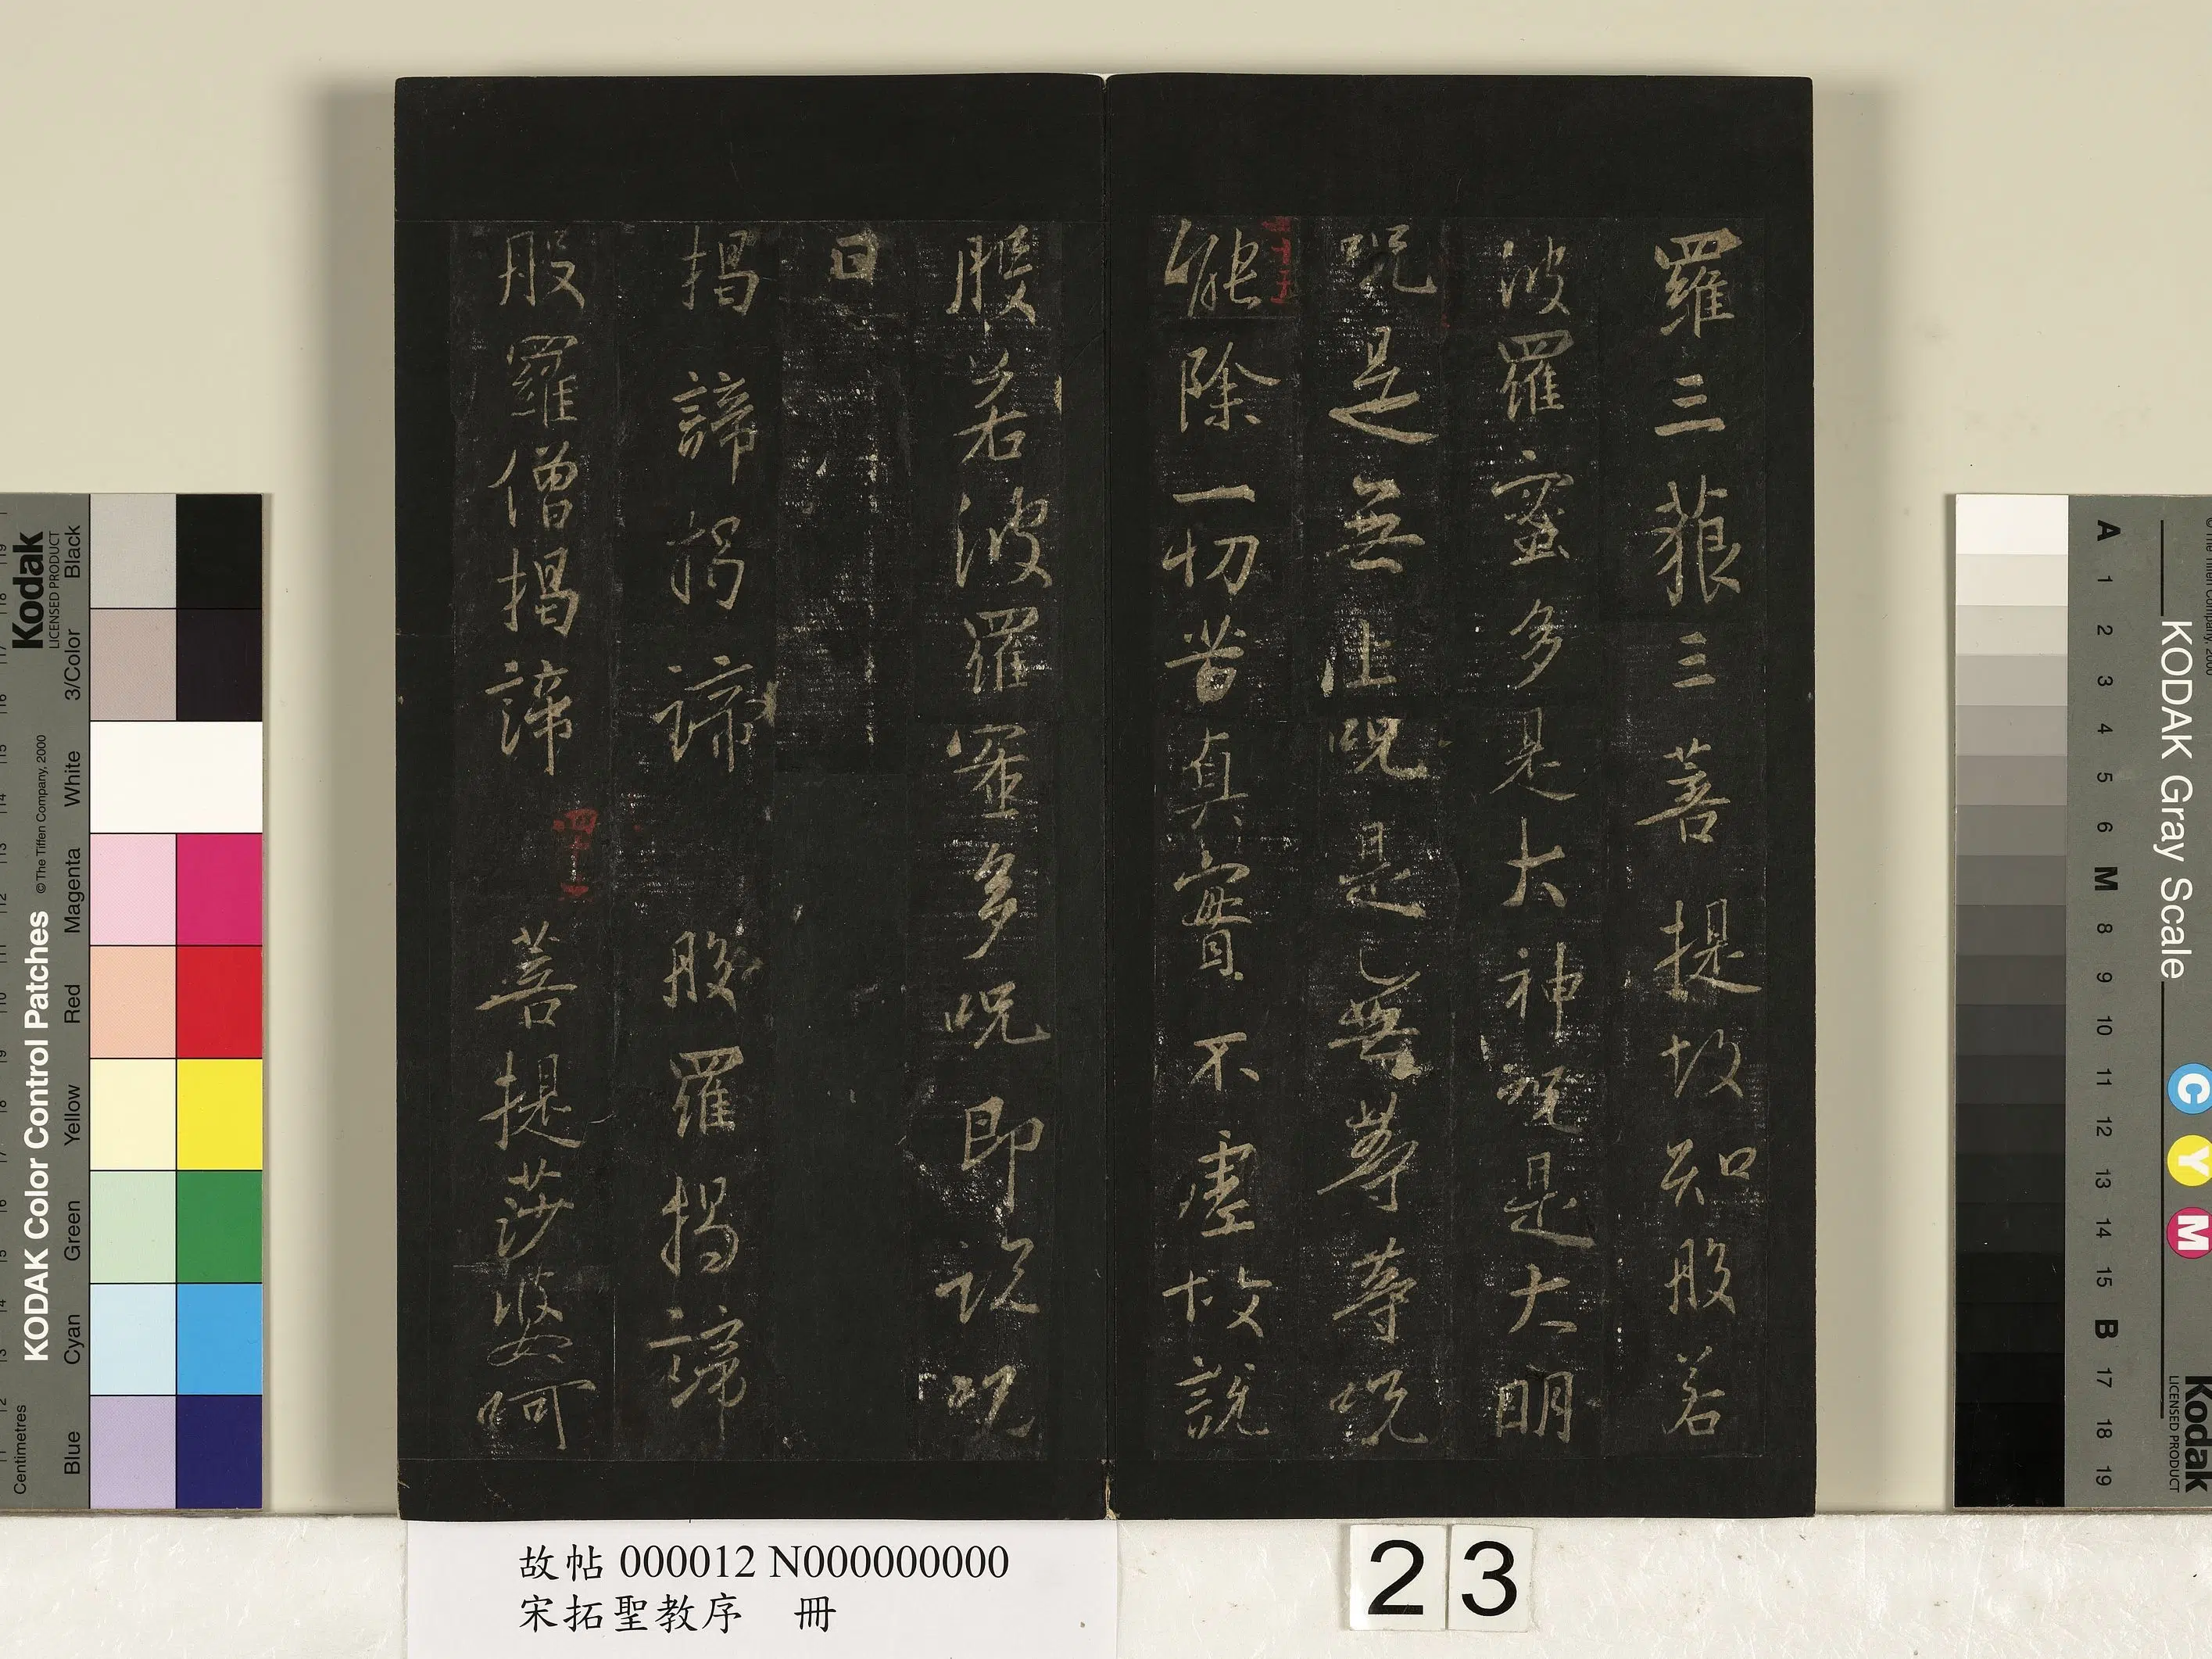 羅三藐三菩提故知般若
波羅蜜多是大神呪是大明
呪是無上呪是無等等呪
能除一切苦真實不虛故說
般若波羅蜜多呪即說呪
曰
揭諦揭諦 般羅揭諦
般羅僧揭諦 菩提莎婆呵
故帖 000012 N000000000
宋拓聖教序 冊
23
KODAK Color Control Patches
© The Tiffen Company, 2000
Kodak
LICENSED PRODUCT
Centimetres
Blue Cyan Green Yellow Red Magenta White 3/Color Black
KODAK Gray Scale
A 1 2 3 4 5 6 M 8 9 10 11 12 13 14 15 B 17 18 19
C Y M
Kodak
LICENSED PRODUCT